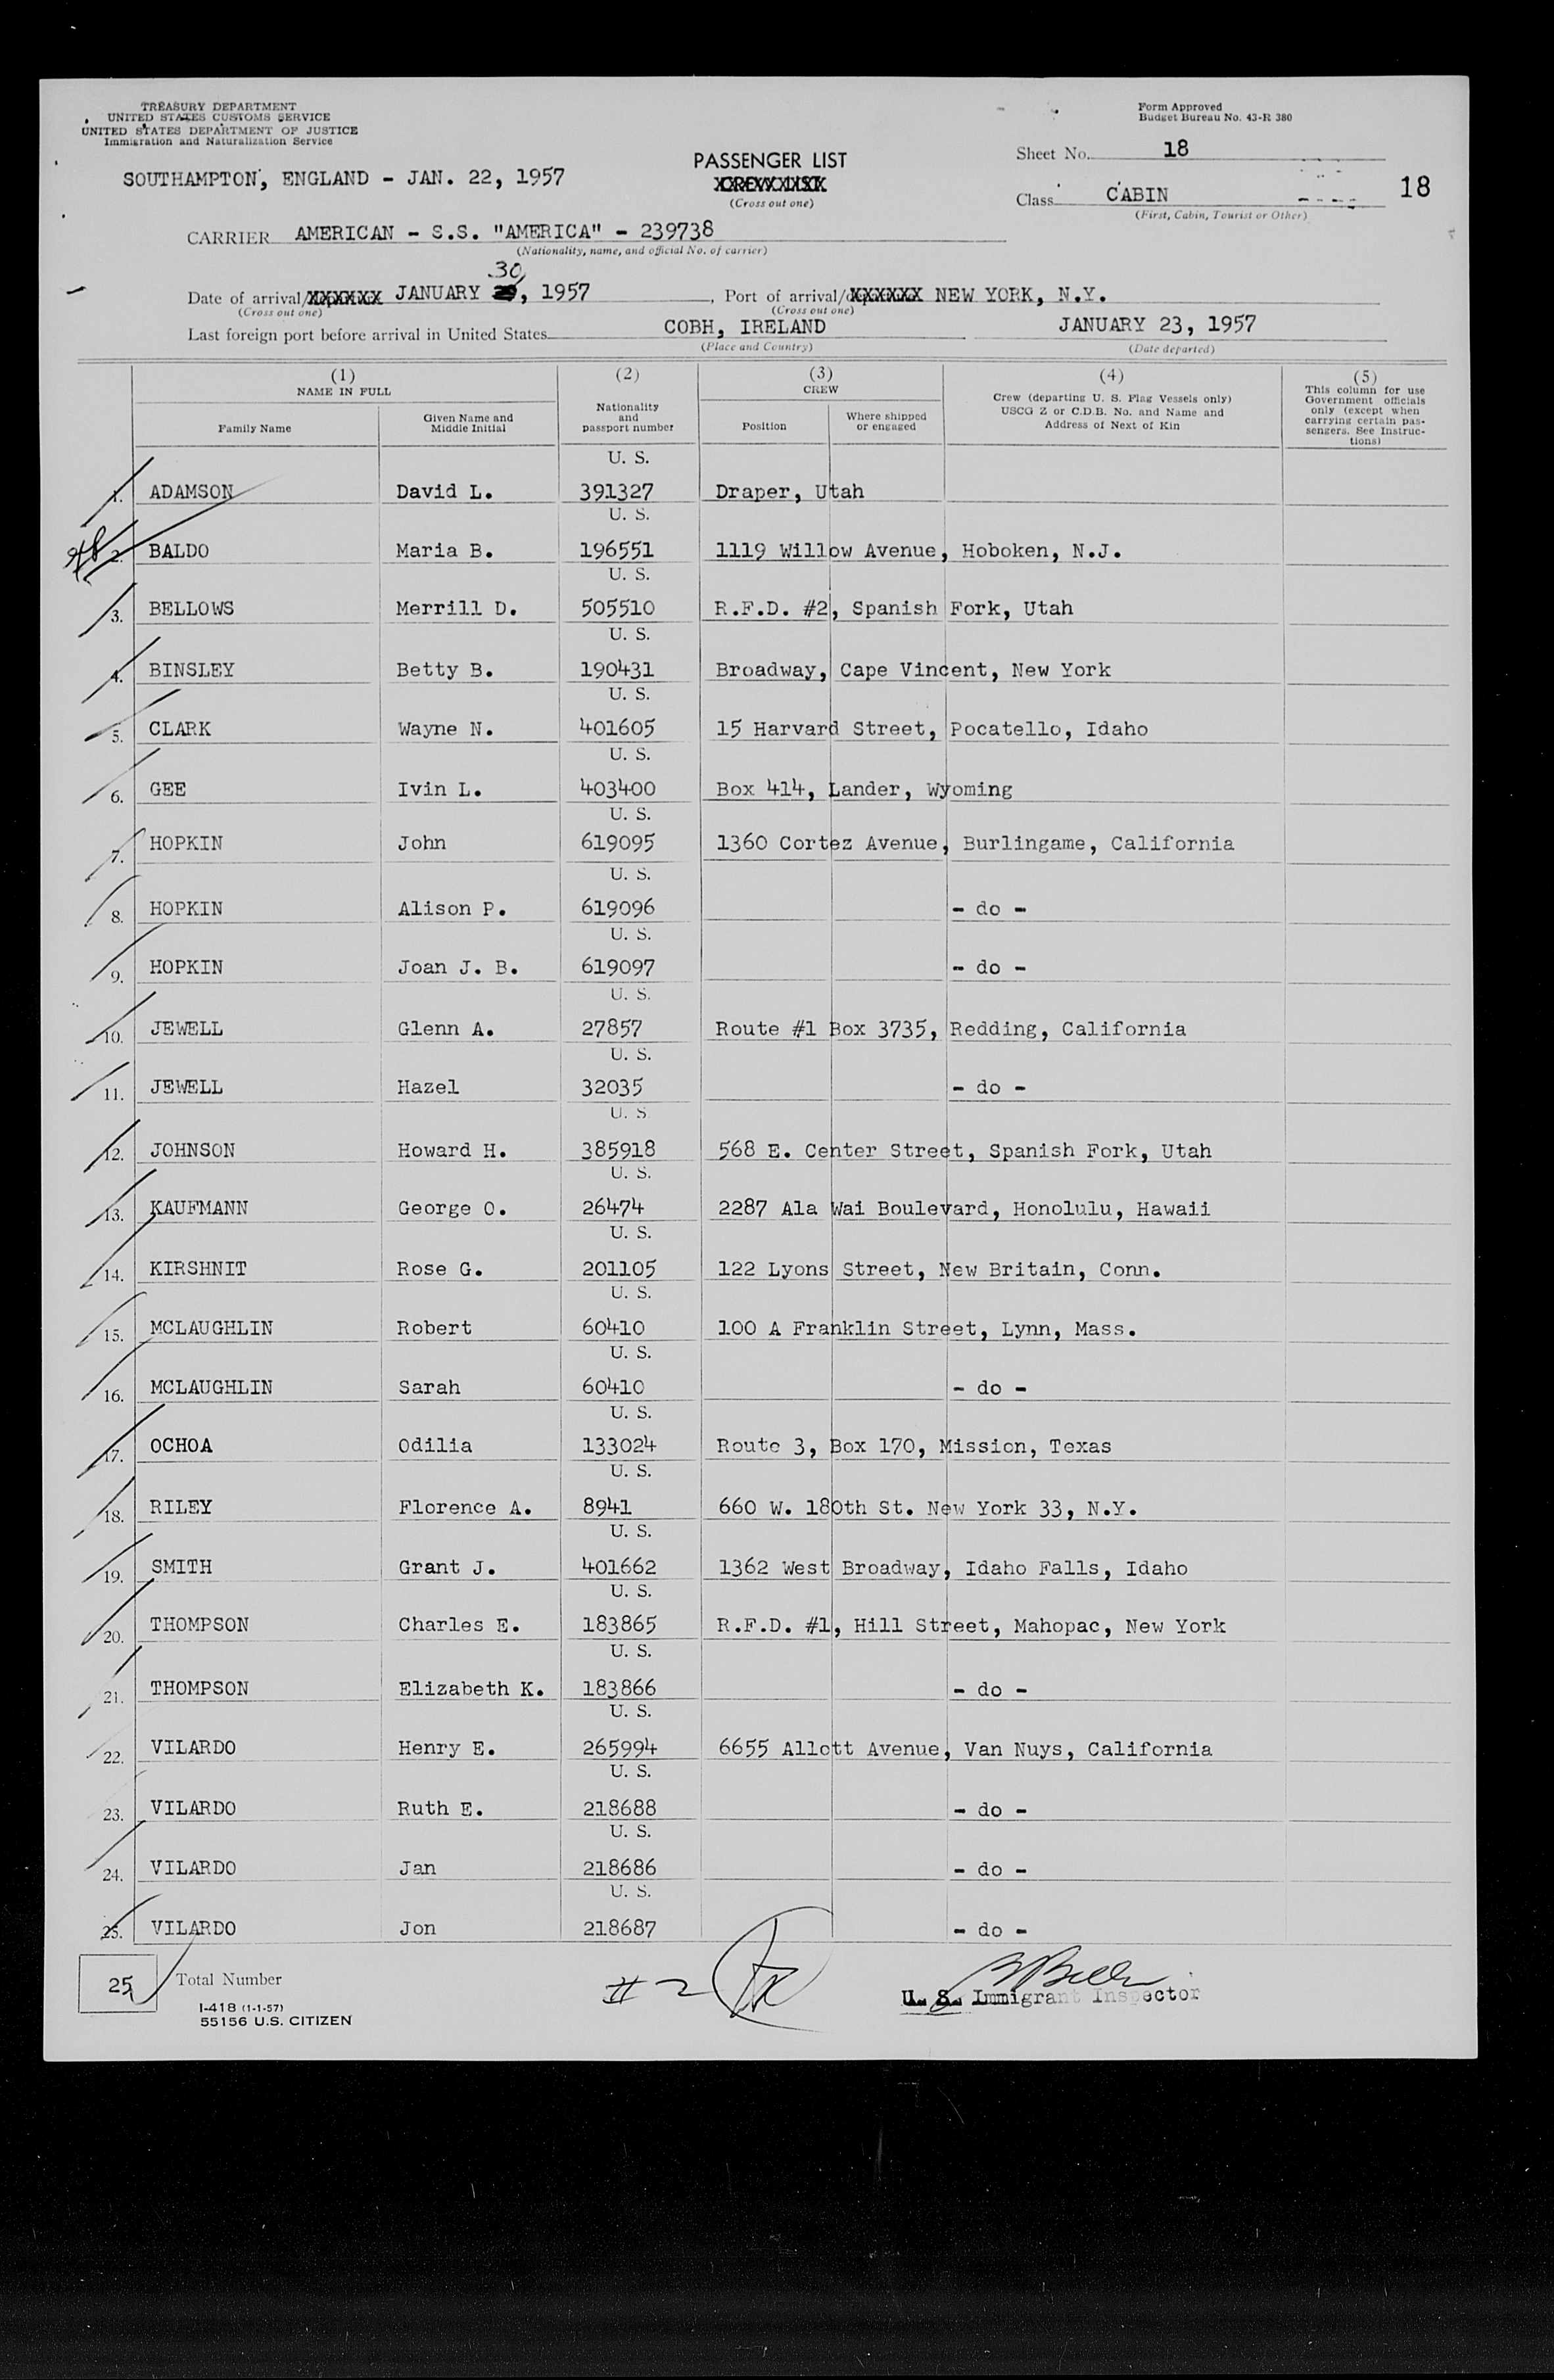 TREASURY DEPARTMENT
UNITED STATES CUSTOMS SERVICE
UNITED STATES DEPARTMENT OF JUSTICE
Immigration and Naturalization Service
Form Approved
Budget Bureau No. 43-R 380
SOUTHAMPTON, ENGLAND - JAN. 22, 1957
PASSENGER LIST
(Cross out one)
Sheet No. 18
Class CABIN
(First, Cabin, Tourist or Other)
18
CARRIER AMERICAN - S.S. "AMERICA" - 239738
(Nationality, name, and official No. of carrier)
30
Date of arrival/XXXXXX JANUARY , 1957, Port of arrival/XXXXXX NEW YORK, N.Y.
(Cross out one) (Cross out one)
Last foreign port before arrival in United States COBH, IRELAND JANUARY 23, 1957
(Place and Country) (Date departed)
(1) (2) (3) (4) (5)
NAME IN FULL
Family Name
Given Name and Middle Initial
Nationality and passport number
CREW
Position
Where shipped or engaged
Crew (departing U. S. Flag Vessels only)
USCG Z or C.D.B. No. and Name and
Address of Next of Kin
This column for use
Government officials
only (except when
carrying certain pas-
sengers. See Instruc-
tions)
U. S.
1. ADAMSON David L. 391327 Draper, Utah
U. S.
2. BALDO Maria B. 196551 1119 Willow Avenue, Hoboken, N.J.
U. S.
3. BELLOWS Merrill D. 505510 R.F.D. #2, Spanish Fork, Utah
U. S.
4. BINSLEY Betty B. 190431 Broadway, Cape Vincent, New York
U. S.
5. CLARK Wayne N. 401605 15 Harvard Street, Pocatello, Idaho
U. S.
6. GEE Ivin L. 403400 Box 414, Lander, Wyoming
U. S.
7. HOPKIN John 619095 1360 Cortez Avenue, Burlingame, California
U. S.
8. HOPKIN Alison P. 619096 - do -
U. S.
9. HOPKIN Joan J. B. 619097 - do -
U. S.
10. JEWELL Glenn A. 27857 Route #1 Box 3735, Redding, California
U. S.
11. JEWELL Hazel 32035 - do -
U. S
12. JOHNSON Howard H. 385918 568 E. Center Street, Spanish Fork, Utah
U. S.
13. KAUFMANN George O. 26474 2287 Ala Wai Boulevard, Honolulu, Hawaii
U. S.
14. KIRSHNIT Rose G. 201105 122 Lyons Street, New Britain, Conn.
U. S.
15. MCLAUGHLIN Robert 60410 100 A Franklin Street, Lynn, Mass.
U. S.
16. MCLAUGHLIN Sarah 60410 - do -
U. S.
17. OCHOA Odilia 133024 Route 3, Box 170, Mission, Texas
U. S.
18. RILEY Florence A. 8941 660 W. 180th St. New York 33, N.Y.
U. S.
19. SMITH Grant J. 401662 1362 West Broadway, Idaho Falls, Idaho
U. S.
20. THOMPSON Charles E. 183865 R.F.D. #1, Hill Street, Mahopac, New York
U. S.
21. THOMPSON Elizabeth K. 183866 - do -
U. S.
22. VILARDO Henry E. 265994 6655 Allott Avenue, Van Nuys, California
U. S.
23. VILARDO Ruth E. 218688 - do -
U. S.
24. VILARDO Jan 218686 - do -
U. S.
25. VILARDO Jon 218687 - do -
25 Total Number
# 2
U. S. Immigrant Inspector
I-418 (1-1-57)
55156 U.S. CITIZEN